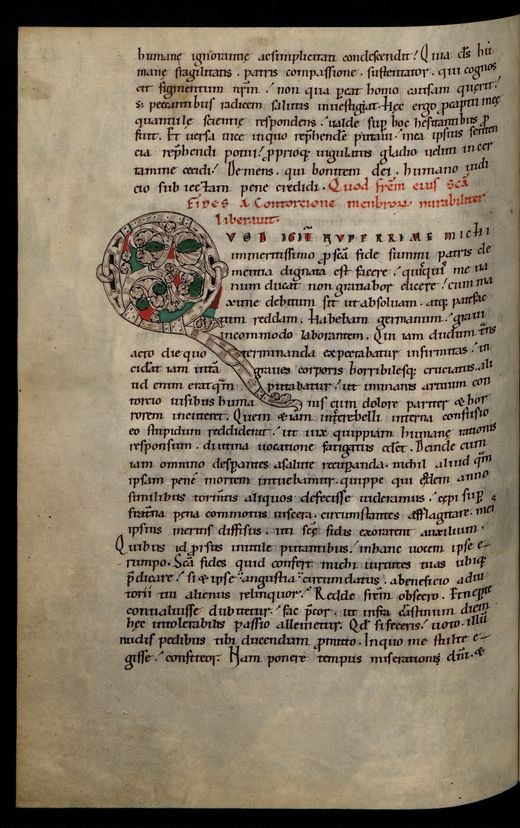 humanę ignorantię acsimplicitati condescendit! Quia ds hu
manę fragilitatis . patris compassione . sustentator . qui cognos
cit figmentum nrm . non qua pereat homo causam querit!
s; peccantibus radicem salutis inuestigat. Hec ergo
quantulę scientię respondens . ualde sup hoc hesitantibus
fuit. Et uersa uice inquo reprhendę putaui . mea ipsius senten
cia reprhendi potui! pprioq; iugulatus gladio ueluti in cer
tamine cecidi . Demens . qui bonitem dei . humano iudi
cio sub iectam pene credidi . Quod frem eius scā
Fides a Contorcione menbrorum mirabiliter
liberauit.
QUOD IGIT NUPERRIME michi
immeritissimo p scā fide summi patris de
mentia dignata est facere . quisquis me ua
num ducat non grauabor dicere! cum ma
xime debitum sit ut absoluam . atq;
tum reddam. Habebam germanum . graui
incommodo laborantem. Qui iam dudum
acto die quo terminanda expectabatur infirmitas . in
cidit iam inita graues corporis horribilesq; cruciatus. ali
ud enim putabatur! ut inmanis artuum con
torcio uisibus huma nis cum dolore pariter & hor
rorem incuteret. Quem etiam interna confusio
eo stupidum reddiderat . ut uix quippiam humanę rationis
responsum . diutina uocatione fatigatus Deinde cum
iam omnino desperantes asalute recuperanda . nichil aliud qm
ipsam penę mortem intuebamur . quippe qui eodem anno
similibus tormtis aliquos defecisse uideramus . cepi sup
fraterna pena commotus uiscera . circumstantes afflagitare . mei
ipsius meritis diffisus . uti scę fidis exorarent auxilium.
Quibus id prsus inutile putantibus . inhanc uocem ipse e-
rumpo . Scā fides quid confert michi uirtutes tuas ubiq;
pdicare . si & ipse angustia circumdatus . abeneficio adiu
torii tui alienus relinquor . Redde frem obsecro . Et
conualuisse dubitetur . fac pcor . ut infra diem
hec intolerabilis passio alleuietur. Qd si feceris . uoto . illu
nudis pedibus tibi ducendum pmitto. Inquo me stulte e-
gisse . confiteor . Nam ponere tempus miserationis dni . &